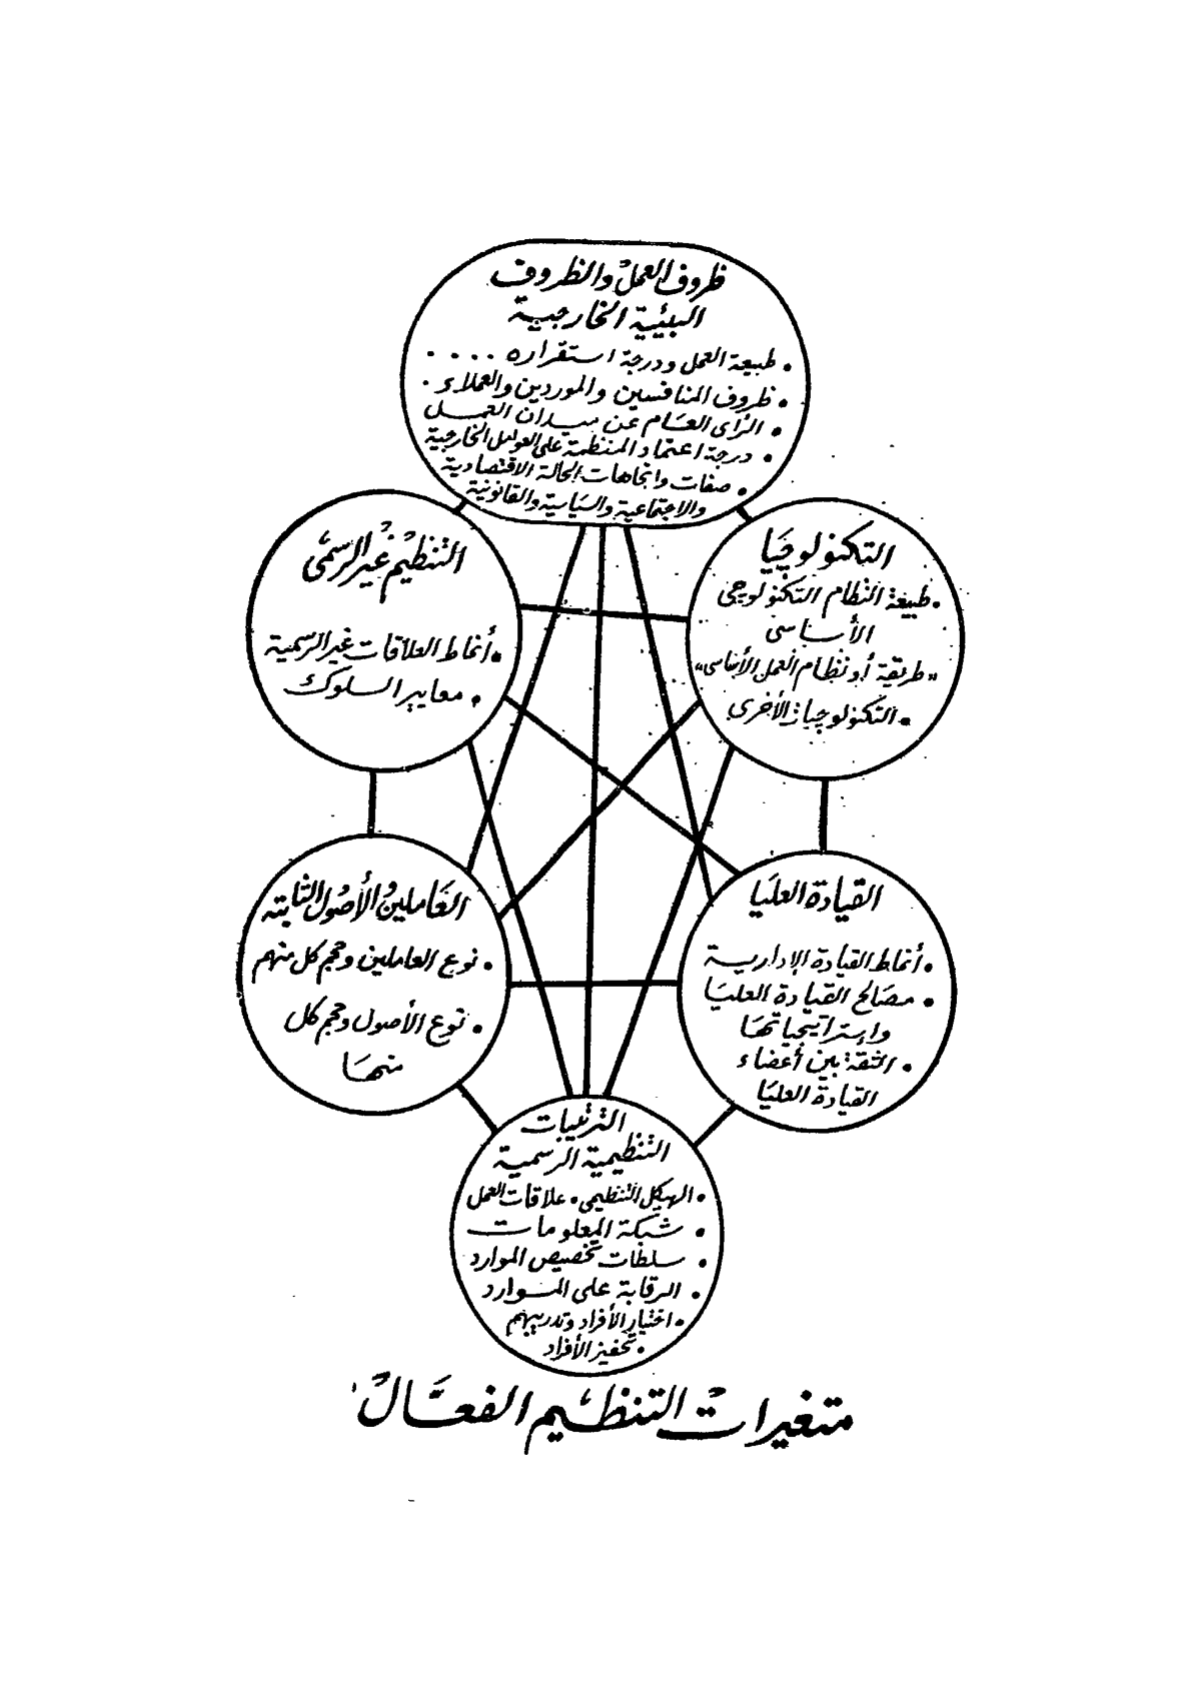 ظروف العمل والظروف
البيئية الخارجية
• طبيعة العمل ودرجة استقراره ....
• ظروف المنافسين والموردين والعملاء.
• الرأى العام عن ميدان العمل
• درجة اعتماد المنظمة على العوامل الخارجية
• صفات واتجاهات الحالة الاقتصادية
والاجتماعية والسياسية والقانونية
التكنولوجيا
• طبيعة النظام التكنولوجى
الأساسى
"طريقة أو نظام العمل الأساسى"
• التكنولوجيات الأخرى
التنظيم غير الرسمى
• أنماط العلاقات غير الرسمية
• معايير السلوك
القيادة العليا
• أنماط القيادة الإدارية
• مصالح القيادة العليا
وإستراتيجياتها
• الثقة بين أعضاء
القيادة العليا
العاملين والأصول الثابته
• نوع العاملين وحجم كل منهم
• نوع الأصول وحجم كل
منها
الترتيبات
التنظيمية الرسمية
• الهيكل التنظيمى • علاقات العمل
• شبكة المعلومات
• سلطات تخصيص الموارد
• الرقابة على الموارد
• اختيار الأفراد وتدريبهم
• تحفيز الأفراد
متغيرات التنظيم الفعال